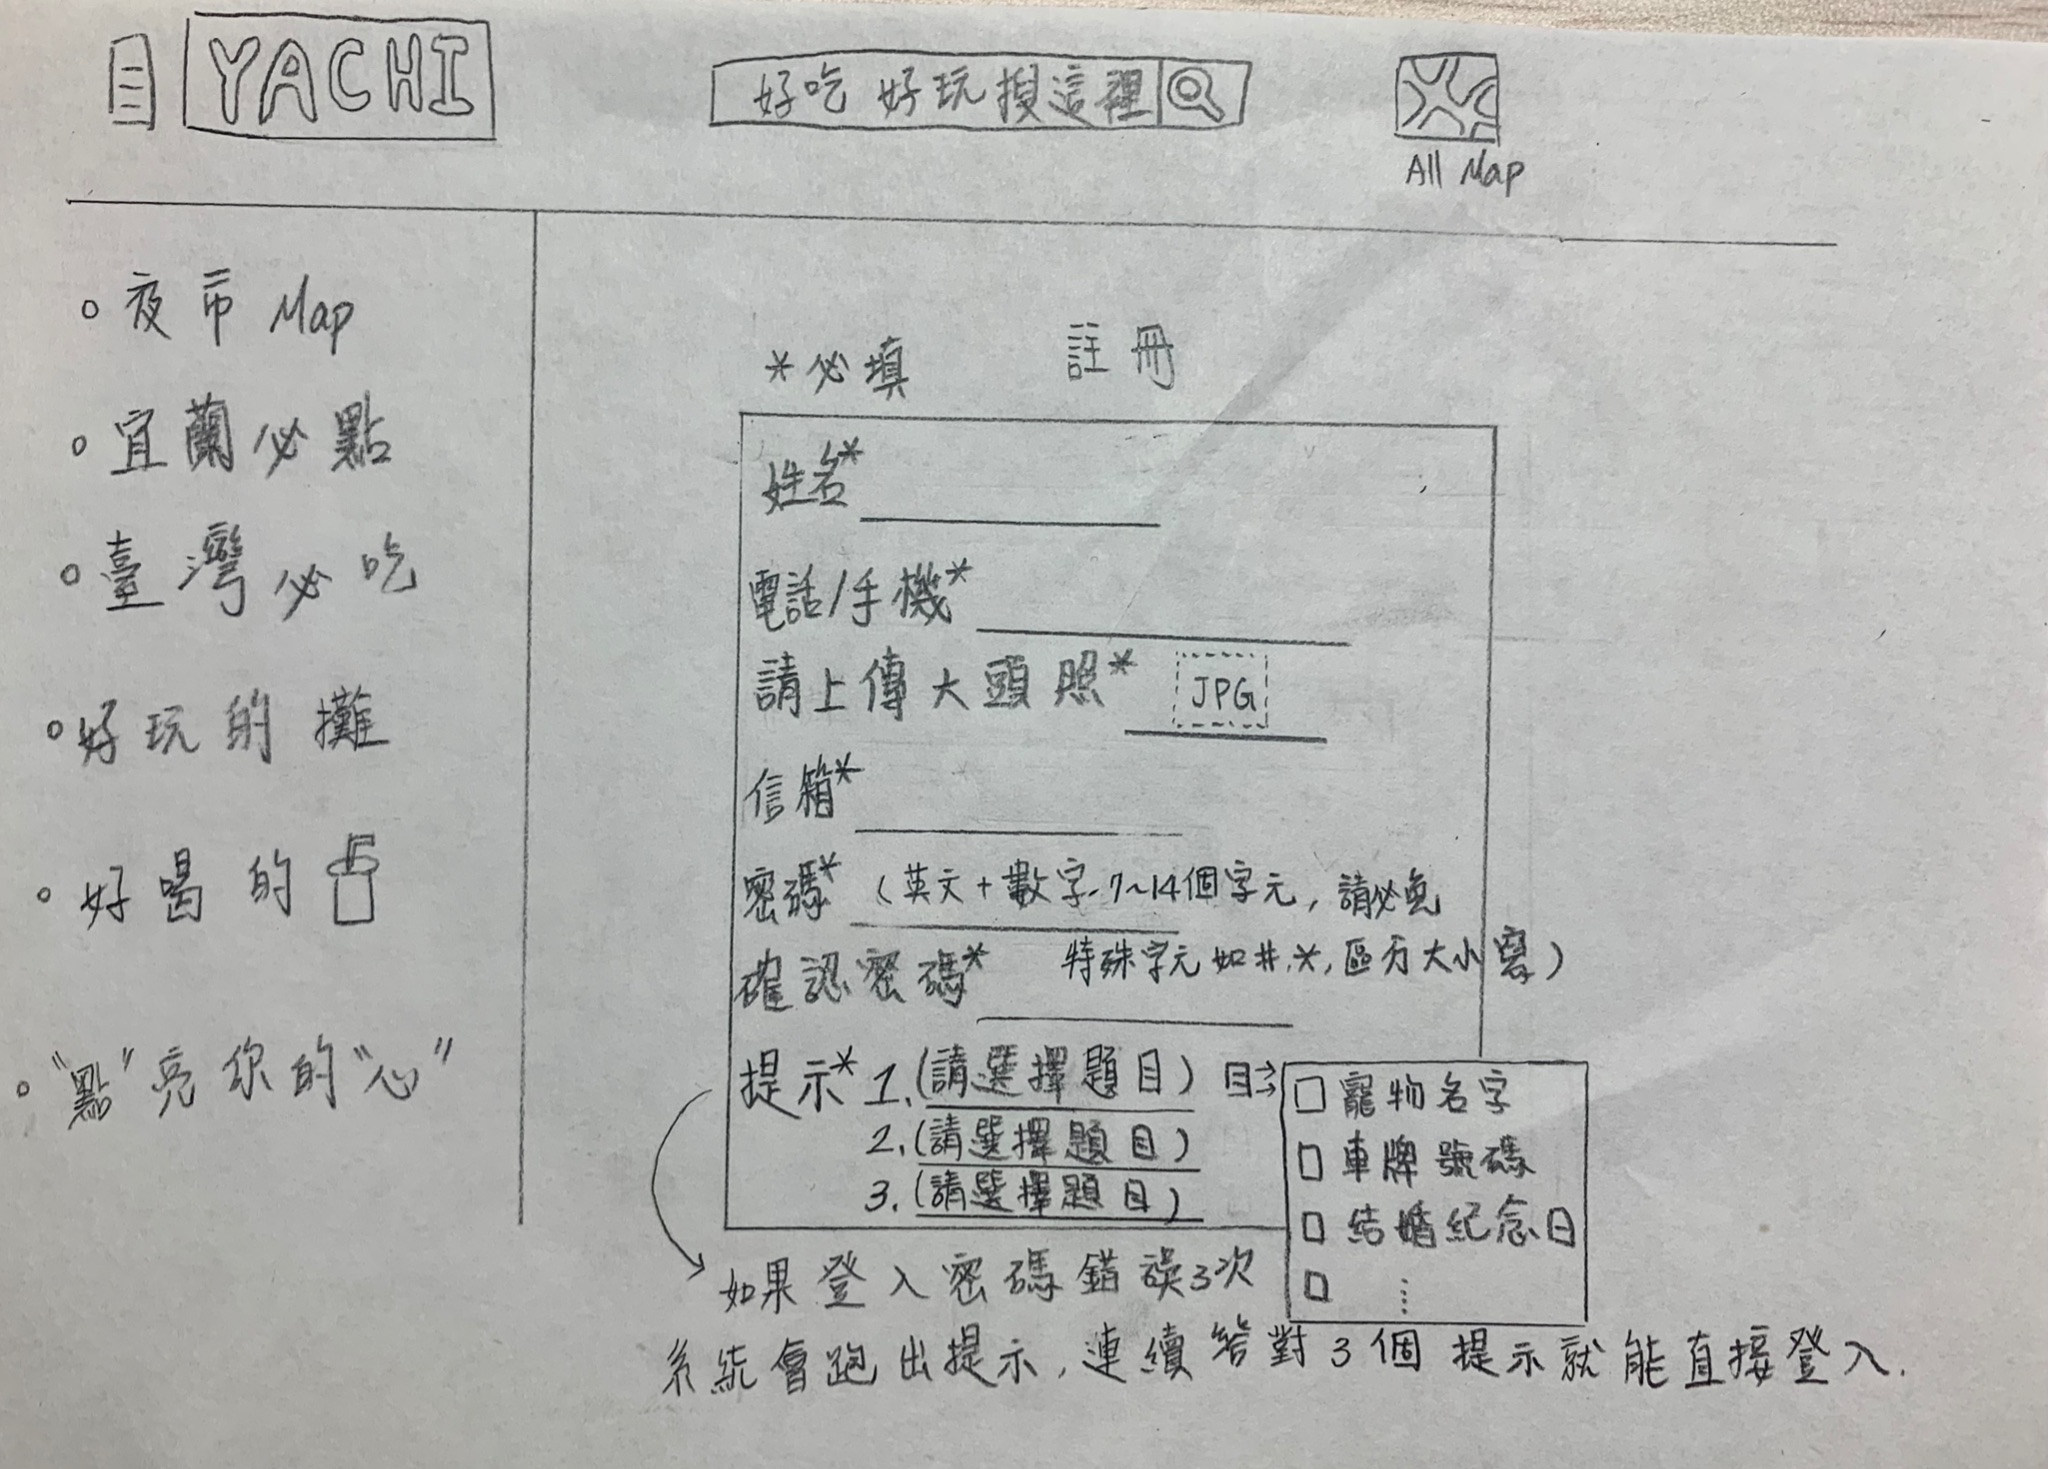 YACHI
好吃 好玩搜這裡
All Map
夜市 Map
宜蘭必點
臺灣必吃
好玩的攤
好喝的
"點"亮你的"心"
*必填
註冊
姓名*
電話/手機*
請上傳大頭照*
JPG
信箱*
密碼* (英文+數字-7~14個字元, 請必免
特殊字元如#.*, 區方大小寫)
確認密碼*
提示* 1.(請選擇題目)
2.(請選擇題目)
3.(請選擇題目)
寵物名字
車牌號碼
结婚紀念日
⋯
如果登入密碼錯誤3次
系統會跑出提示, 連續答對3個提示就能直接登入.